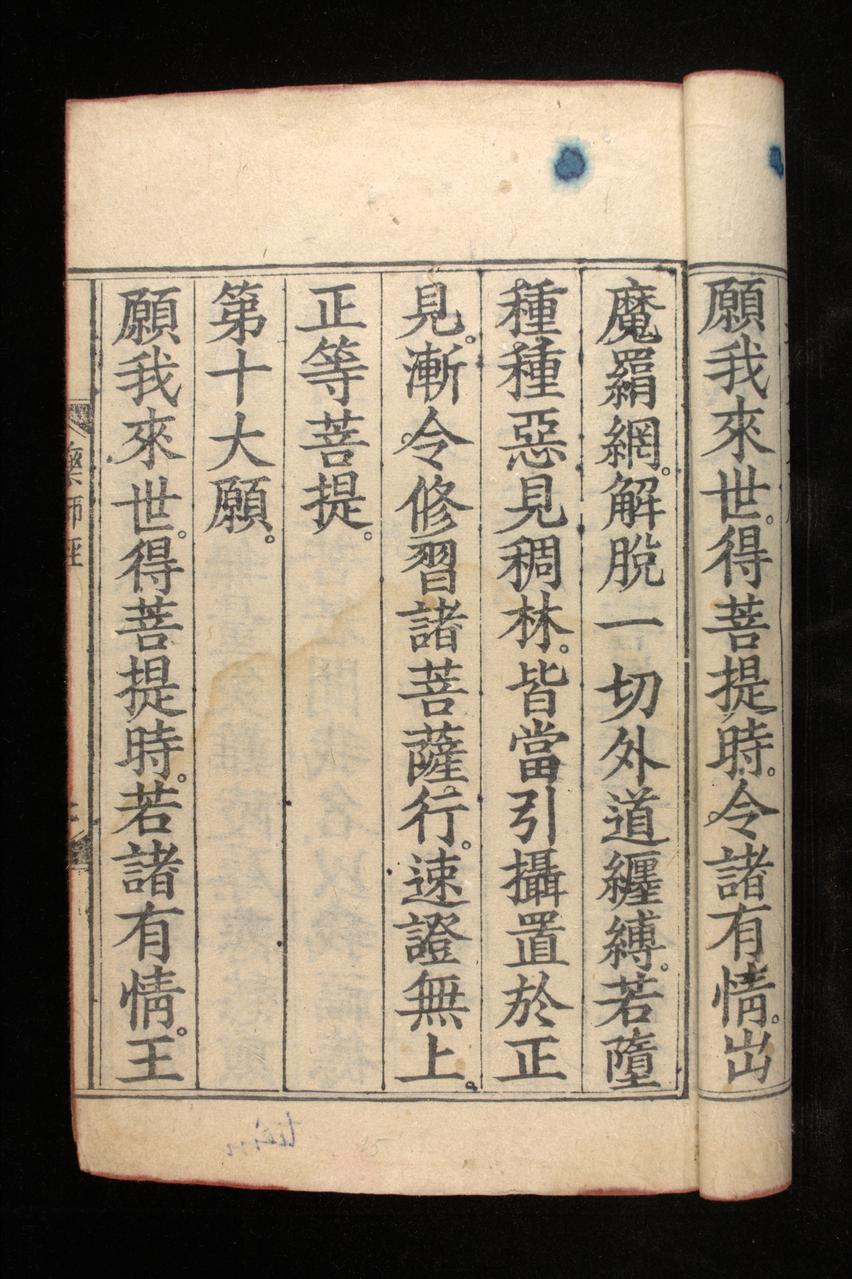 願我來世。得菩提時。令諸有情。出
魔羂網。解脫一切外道纏縛。若墮
種種惡見稠林。皆當引攝置於正
見。漸令修習諸菩薩行。速證無上。
正等菩提。
第十大願。
願我來世。得菩提時。若諸有情。王
藥師經